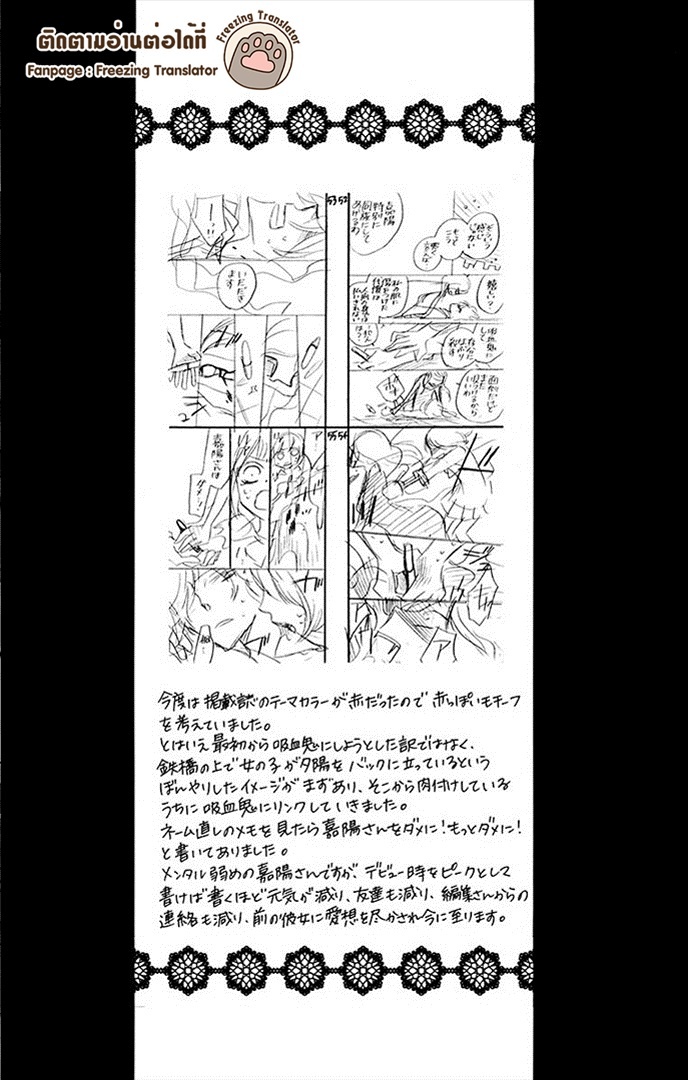 ติดตามอ่านต่อได้ที่
Fanpage : Freezing Translator
Freezing Translator
53 52
嘉陽
特別に
同族にして
あげるわ
いただき
ます
嬉しい?
55 54
嘉陽さんは
ダメ…!
今度は掲載誌のテーマカラーが赤だったので赤っぽいモチーフ
を考えていました。
とはいえ最初から吸血鬼にしようとした訳ではなく、
鉄橋の上で女の子が夕陽をバックに立っているという
ぼんやりしたイメージがまずあり、そこから肉付けしている
うちに吸血鬼にリンクしていきました。
ネーム直しのメモを見たら嘉陽さんをダメに!もっとダメに!
と書いてありました。
メンタル弱めの嘉陽さんですが、デビュー時をピークとして
書けば書くほど元気が減り、友達も減り、編集さんからの
連絡も減り、前の彼女に愛想を尽かされ今に至ります。